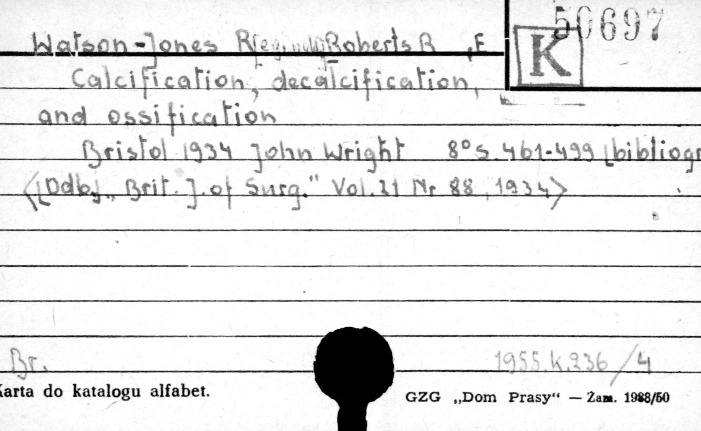 50697
K
Watson-Jones R[eginald] Roberts R ,E
Calcification, decalcification,
and ossification
Bristol 1934 John Wright 8° s. 461-499 [bibliogr
<[Odb.] „Brit. J. of Surg." Vol. 21 Nr 88, 1934>
Br.
1955.K.236/4
Karta do katalogu alfabet.
GZG „Dom Prasy" — Zam. 1988/50